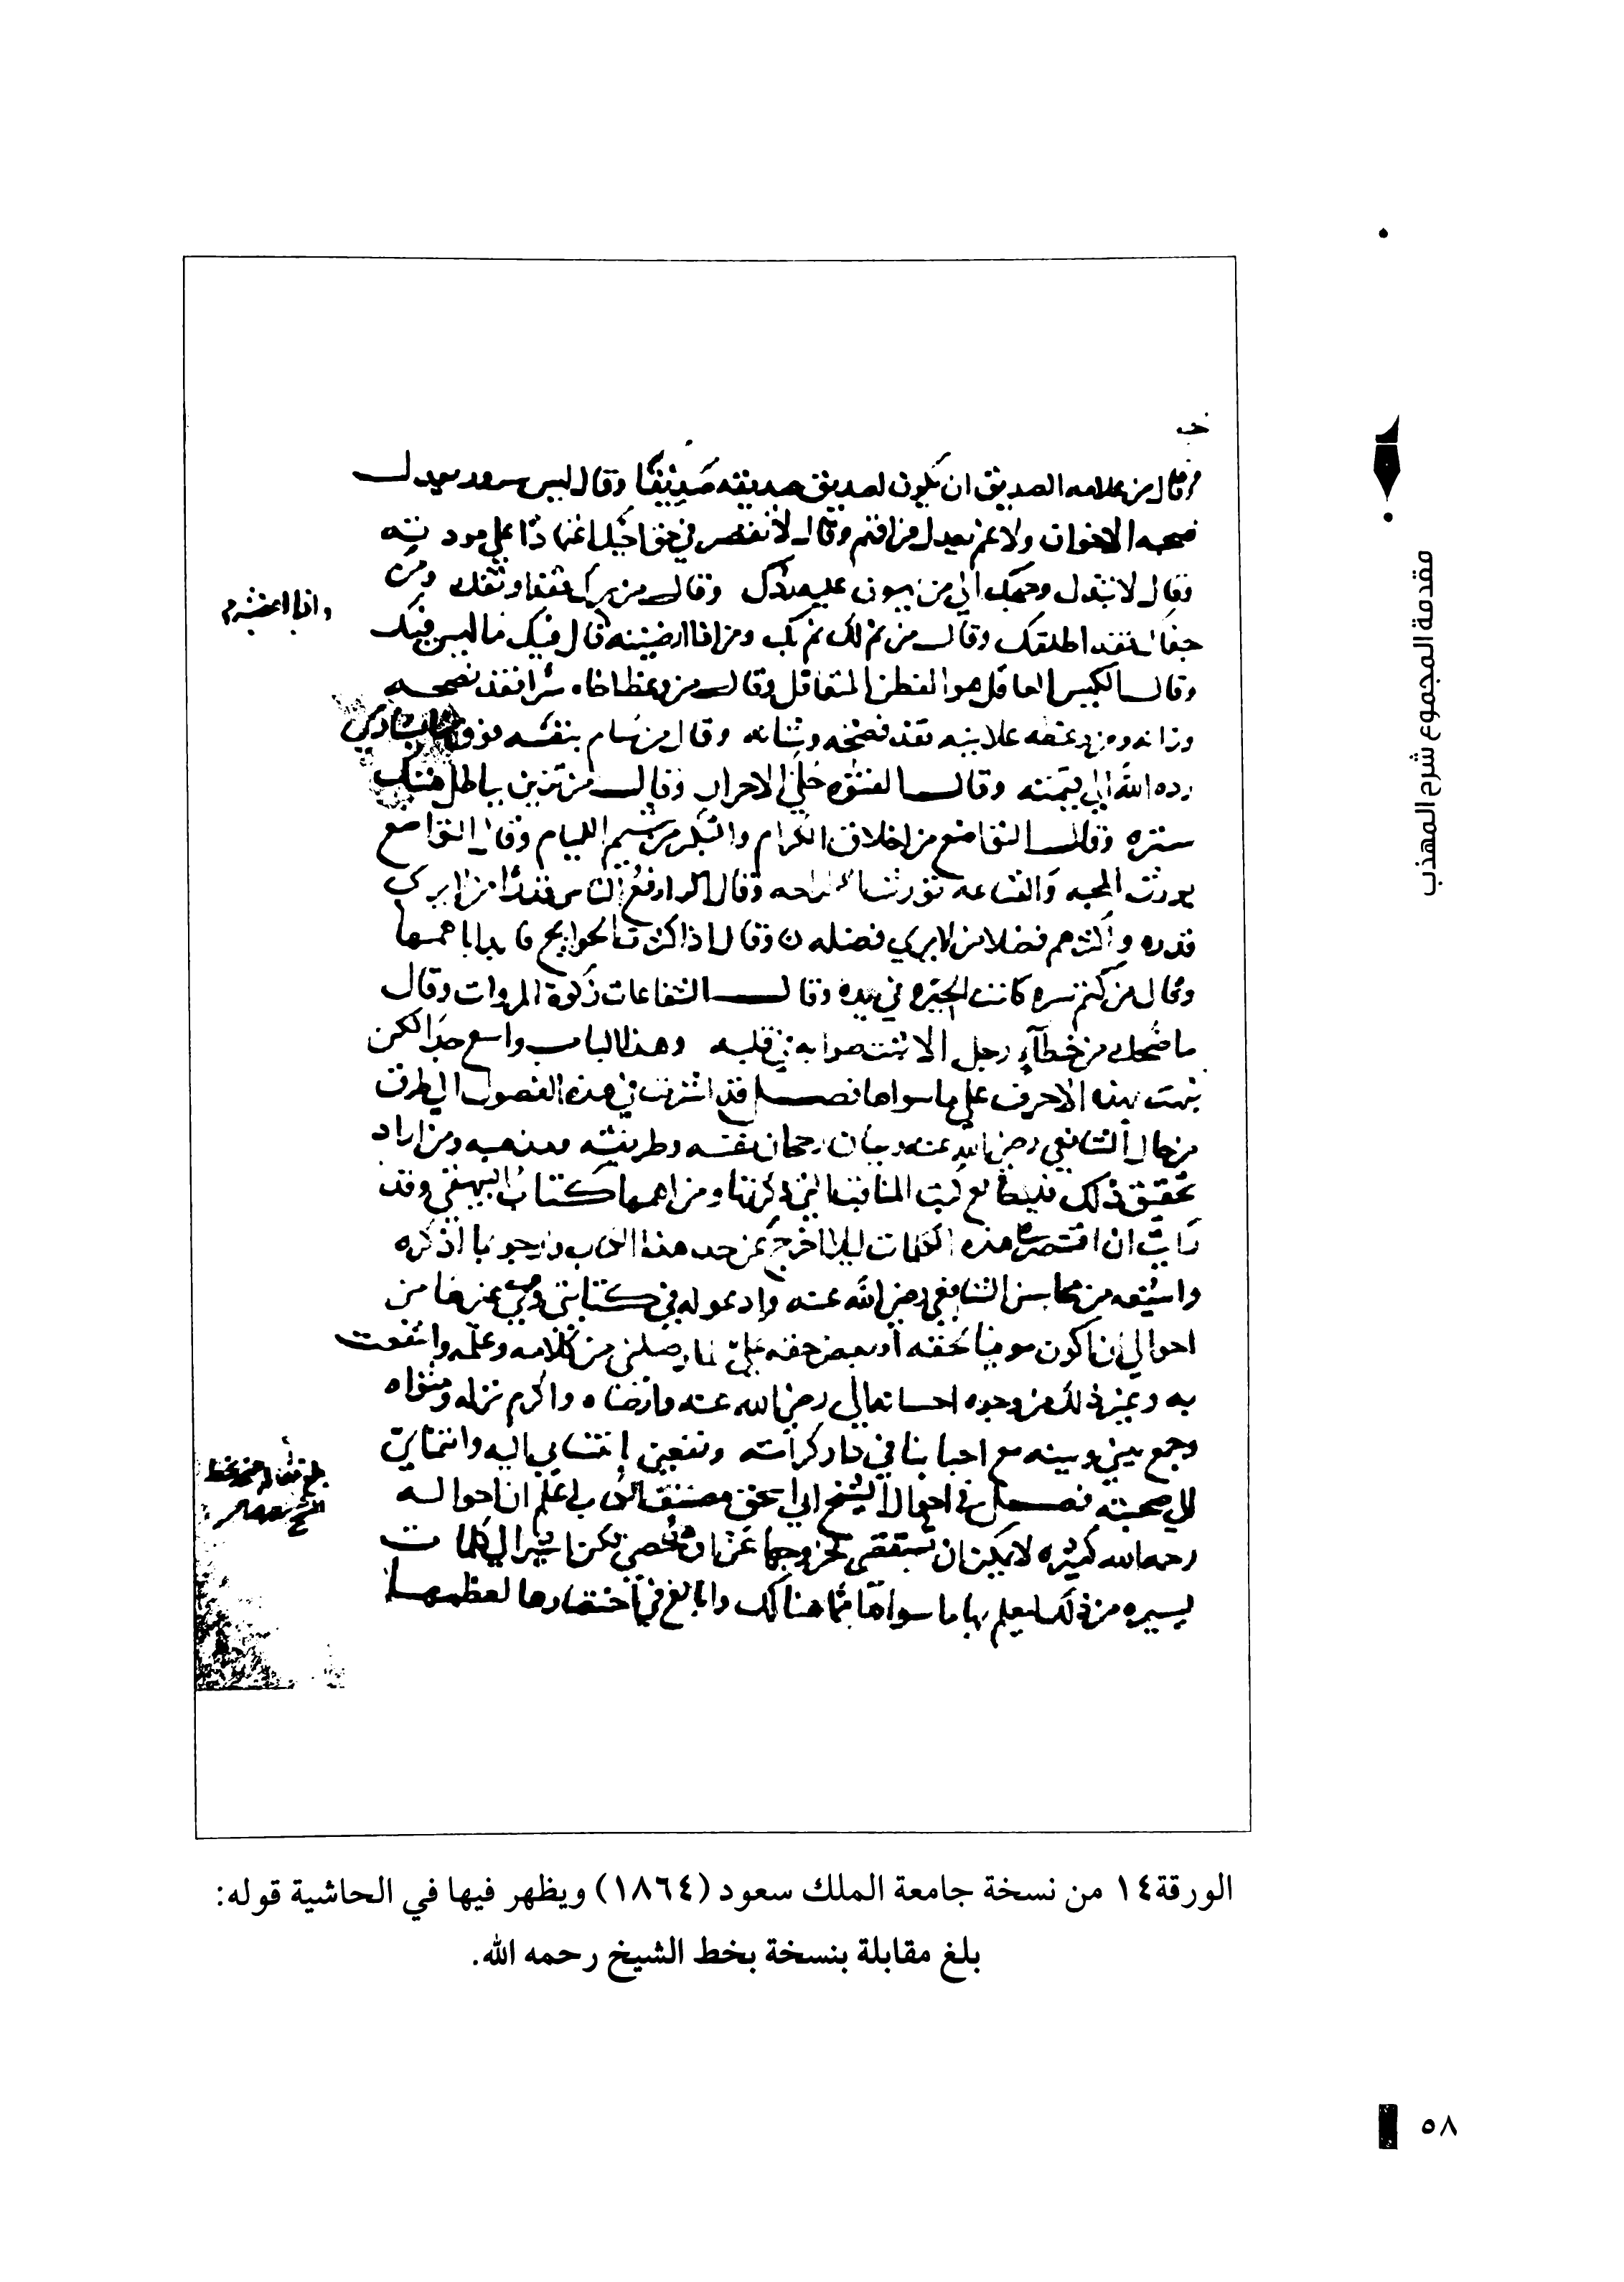 مقدمة المجموع شرح المهذب
وقال من علامه الصديق ان يكون لصديق صديقه صديقا وقال ليس سرور يعدل
صحبه الاخوان ولا غم يعدل فراقهم وقال لا تقصر في حق اخيك اعتمادا على مودته
وقال لا تبذل وجهك الى من يهون عليه ردك وقال من برك فقد اوثقك ومن
جفاك فقد اطلقك وقال من نم لك نم بك ومن اذا ارضيته قال فيك ما ليس فيك
وقال الكيس العاقل هو الفطن المتغافل وقال من وعظ اخاه سرا فقد نصحه
وزانه ومن وعظه علانيه فقد فضحه وشانه وقال من سام بنفسه فوق ما يساوي
رده الله الى قيمته وقال الفتوه حلي الاحرار وقال من تزين بباطل هتك
ستره وقال التواضع من اخلاق الكرام والتكبر من شيم الليام وقال التواضع
يورث المحبه والقناعه تورث الراحه وقال ارفع الناس قدرا من لا يرى
قدره واكثرهم فضلا من لا يرى فضله وقال اذا كثرت الحوايج فابدا باهمها
وقال من كتم سره كانت الخيره في يده وقال الشفاعات زكوة المروات وقال
ما ضحك من خطاء رجل الا ثبت صوابه في قلبه وهذا الباب واسع جدا لكن
نبهت بهذه الاحرف على ما سواها فصل قد اشرت في هذه الفصول الى طرف
من حال الشافعي رضي الله عنه وبيان رجحان نفسه وطريقته ومذهبه ومن اراد
تحقيق ذلك فليطالع كتب المناقب التي ذكرتها ومن اهمها كتاب البيهقي وقد
رايت ان اقتصر على هذه الكلمات ليلا اخرج عن حد هذا الكتاب وارجو بما اذكره
واشيعه من محاسن الشافعي رضي الله عنه وادعو له في كتابتي وفي غيرها من
احوالي ان اكون موفيا لحقه او بعض حقه علي لما وصلني من كلامه وعلمه وانتفعت
به وغير ذلك من وجوه احسانه الي رضي الله عنه وارضاه واكرم نزله ومثواه
وجمع بيني وبينه مع احبابنا في دار كرامته ونفعني بانتسابي اليه وانتمائي
الى صحبته فصل في احوال الشيخ ابي اسحق مصنف الكتاب اعلم ان احواله
رحمه الله كثيره لا يمكن ان تستقصى لخروجها عن ان تحصى لكن اشير الى كلمات
يسيره من ذلك ليعلم بها ما سواها مما هنالك وابالغ في اختصارها لعظمها
الورقة١٤ من نسخة جامعة الملك سعود (١٨٦٤) ويظهر فيها في الحاشية قوله:
بلغ مقابلة بنسخة بخط الشيخ رحمه الله.
٥٨